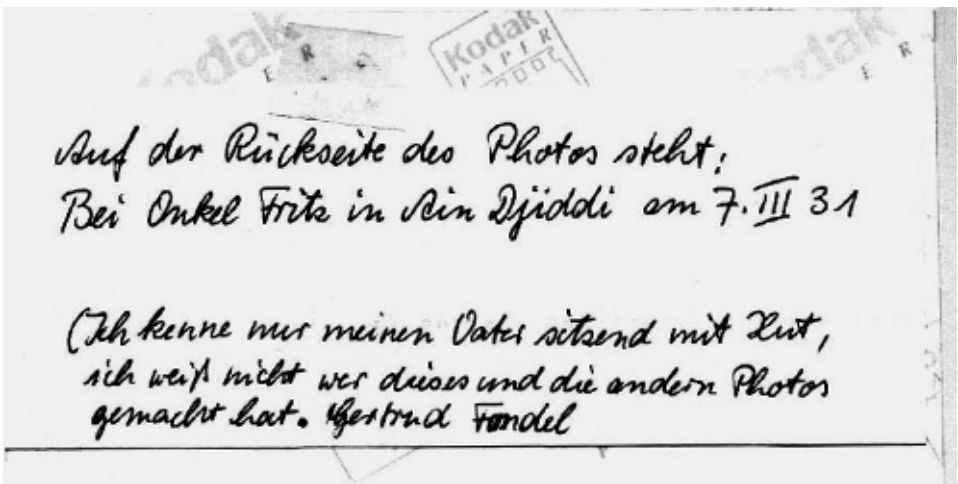 Kodak
PAPER
Auf der Rückseite des Photos steht:
Bei Onkel Fritz in Ain Djiddi am 7. III 31
(Ich kenne nur meinen Vater sitzend mit Hut,
ich weiß nicht wer dieses und die andern Photos
gemacht hat. Gertrud